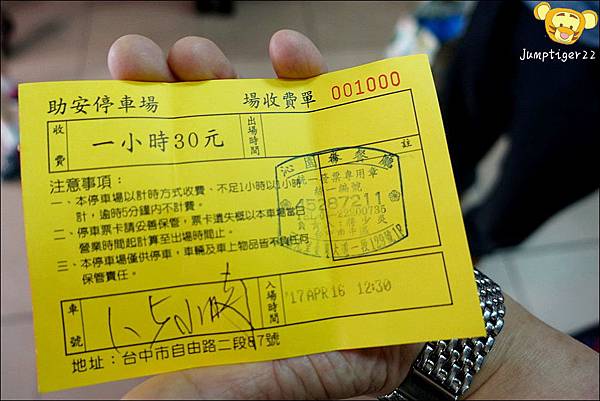 Jumptiger22
助安停車場 場收費單 001000
收費 一小時30元 出場時間
註
注意事項：
一、本停車場以計時方式收費、不足1小時以1小時
計，逾時5分鐘內不計費。
二、停車票卡請妥善保管，票卡遺失概以本車場當日
營業時間起計算至出場時間止。
三、本停車場僅供停車，車輛及車上物品皆不負責任何
保管責任。
沁園春餐廳
統一發票專用章
統一編號
45287211
車號 入場時間 '17APR16 12:30
地址：台中市自由路二段87號